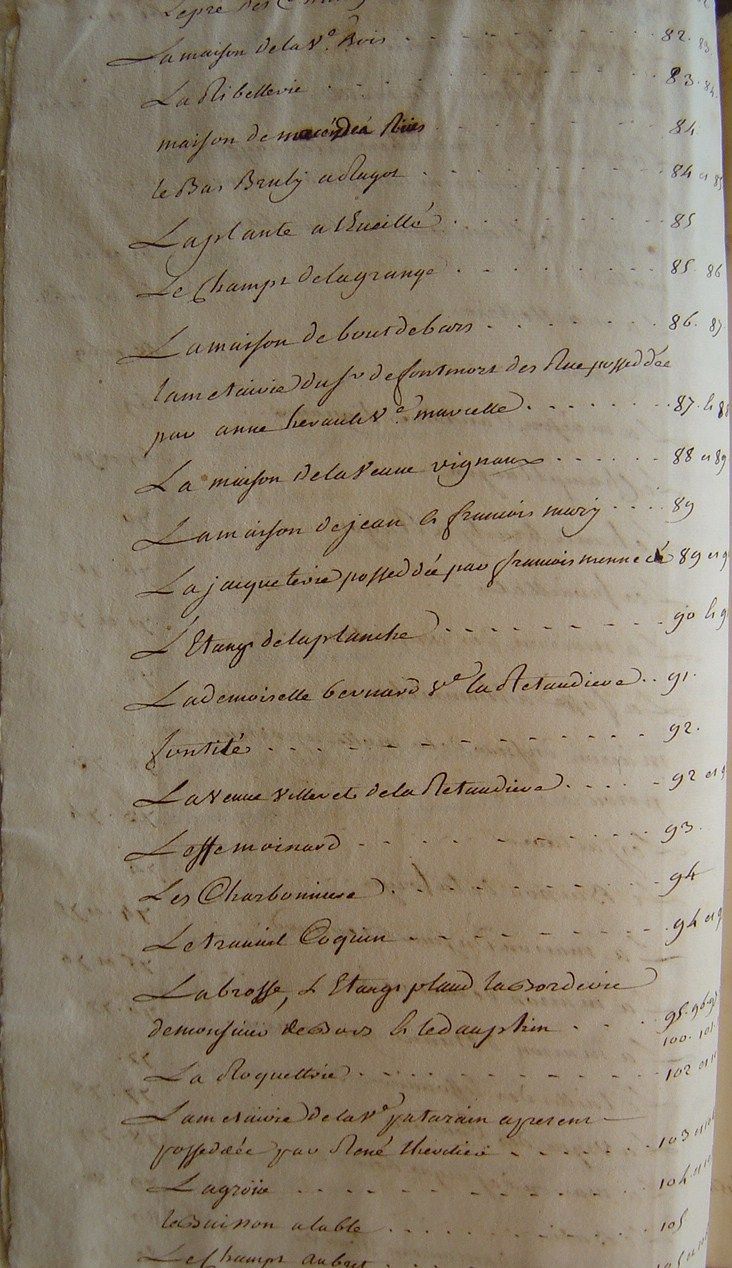 La maison de la Ve. Bois . . . . . . . . 82. 83
La Ribellerie . . . . . . . . 83. 84.
maison de . . . . . . . . 84
le Bas Bruly a Ragot . . . . . . . . 84 et 85
La plante a . . . . . . . . 85
Le Champt de la grange . . . . . . . . 85. 86
La maison de bout de bois . . . . . . . . 86. 87
la metairie du sr. de fontmort des Rue posseddée
par anne herault Ve. marcelle . . . . . . . . 87. & 88
La maison de la Veuve vignaux . . . . . . 88 et 89
La maison de jean & francois . . . . 89
La jacqueterie posseddée par francois 89 et
L'Etang de la planche . . . . . . . . 90 &
La demoiselle bernard Ve. la Retaudiere . . 91.
. . . . . . . . 92.
La Veuve Villeret de la Retaudiere . . . . . 92 et
Losse moinard . . . . . . . . 93.
Les Charbonniere . . . . . . . . 94
Le Coquin . . . . . . . . 94 et
La brosse, L'Etang plaud la Borderie
de monsieur de Bors & le dauphin . . . 95. 96.
100. 101.
La Roquettrie . . . . . . . . 102 et
La metairie de la Ve. patarain a present
posseddée par René . . . . . . 103 et
La groie . . . . . . . . 104 et
le Buisson a lable . . . . . . . . 105
Le Champt . . . . . . . .